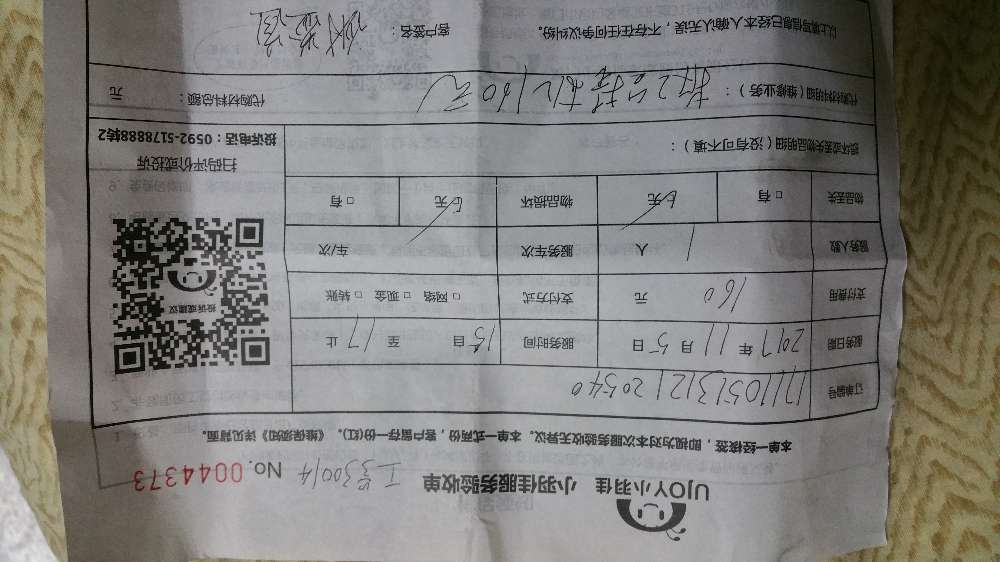 UJOY小羽佳 小羽佳服务验收单 工号30014 No. 0044373
本单一经核签，即视为对本次服务验收无异议。本单一式两份，客户留存一份(红)。《维保须知》详见背面。
订单编号
服务日期 2017 年 11 月 5 日 服务时间 15 自 至 17 止
支付费用 160 元 支付方式 □ 网络 □ 现金 □ 转账
服务人数 1 人 服务车次 车/次
物品丢失 □ 有 无 物品损坏 无 □ 有
投诉或建议
扫码评价或投诉
投诉电话：0592-5178888转2
损坏或丢失物品明细（没有可不填）：
代购材料明细（维修业务）： 160元 代购材料总额： 元
以上填写信息已经本人确认无误，不存在任何争议纠纷。 客户签名：